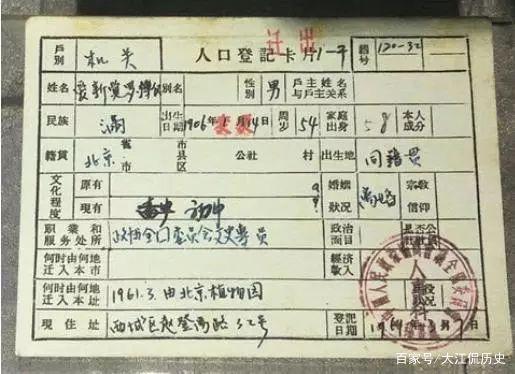 迁出
戶別 机关 人口登記卡片 1-7 編号 120-32
姓名 爱新觉罗溥仪 別名 性別 男 戶主姓名与戶主关系
民族 滿 出生日期 1906年 月14日 周岁 54 家庭出身 本人成分
籍貫 北京 省市 市县区 公社 村 出生地 同籍贯
文化程度 原有 婚姻狀况 宗教信仰
現有 初中
职業和服务处所 政协全国委员会文史專員 政治面目 是否
何时由何地迁入本市 經济收入
何时由何地迁入本址 1961.3.由北京植物园
現住址 西城区赵登禹路32号 登記日期
人 科
百家号/大江侃历史